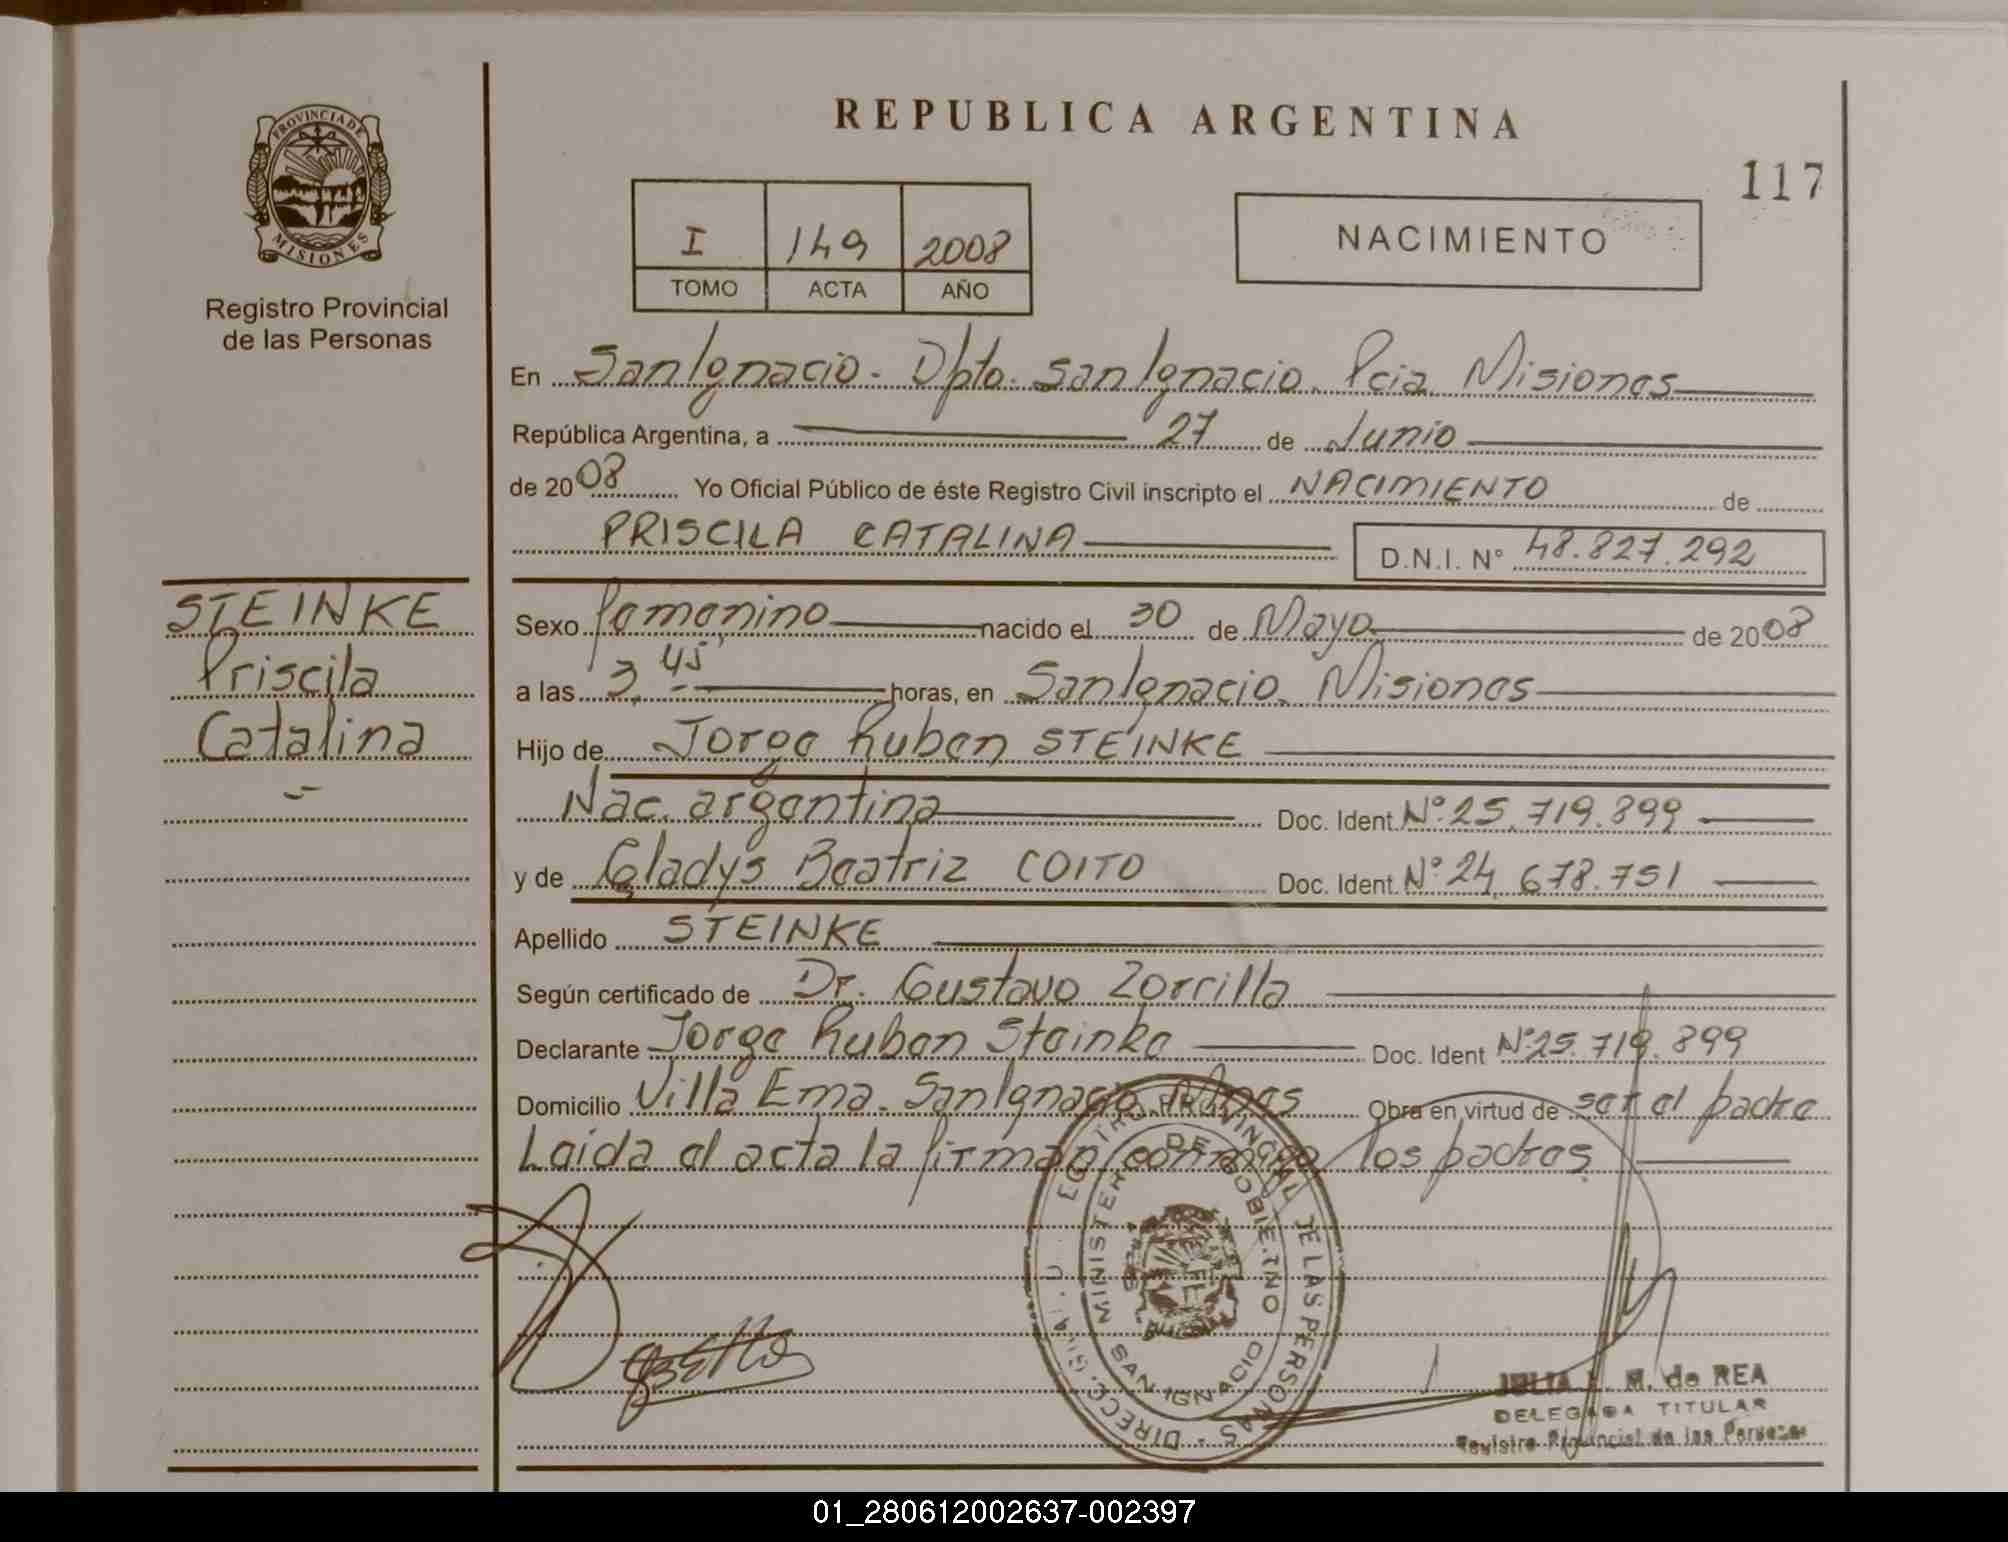 REPUBLICA ARGENTINA
117
PROVINCIA DE
MISIONES
Registro Provincial
de las Personas
I 149 2008
TOMO ACTA AÑO
NACIMIENTO
En San Ignacio - Dpto. San Ignacio. Pcia. Misiones
República Argentina, a 27 de Junio
de 2008 Yo Oficial Público de éste Registro Civil inscripto el NACIMIENTO de
PRISCILA CATALINA D.N.I. N° 48.827.292
STEINKE
Priscila
Catalina
Sexo femenino nacido el 30 de Mayo de 2008
a las 3,45' horas, en San Ignacio. Misiones
Hijo de Jorge Ruben STEINKE
Nac. argentina Doc. Ident. N° 25.719.899
y de Gladys Beatriz COITO Doc. Ident. N° 24.678.751
Apellido STEINKE
Según certificado de Dr. Gustavo Zorrilla
Declarante Jorge Ruben Steinke Doc. Ident N° 25.719.899
Domicilio Villa Ema. San Ignacio. Mnes Obra en virtud de ser el padre
Leida el acta la firman conmigo los padres
REGISTRO PROVINCIAL DE LAS PERSONAS - DIRECC.
MINISTERIO DE GOBIERNO
SAN IGNACIO
JULIA M. de REA
DELEGADA TITULAR
Registro Provincial de las Personas
01_280612002637-002397